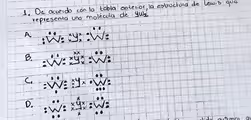 1. De acuerdo con la tabla anterior, la estructura de Lewis que
representa una molécula de YW₂
A. :W: :Y: :W:
B. :W: :Y: :W:
C. :W: :Y: :W:
D. :W: :Y: :W: